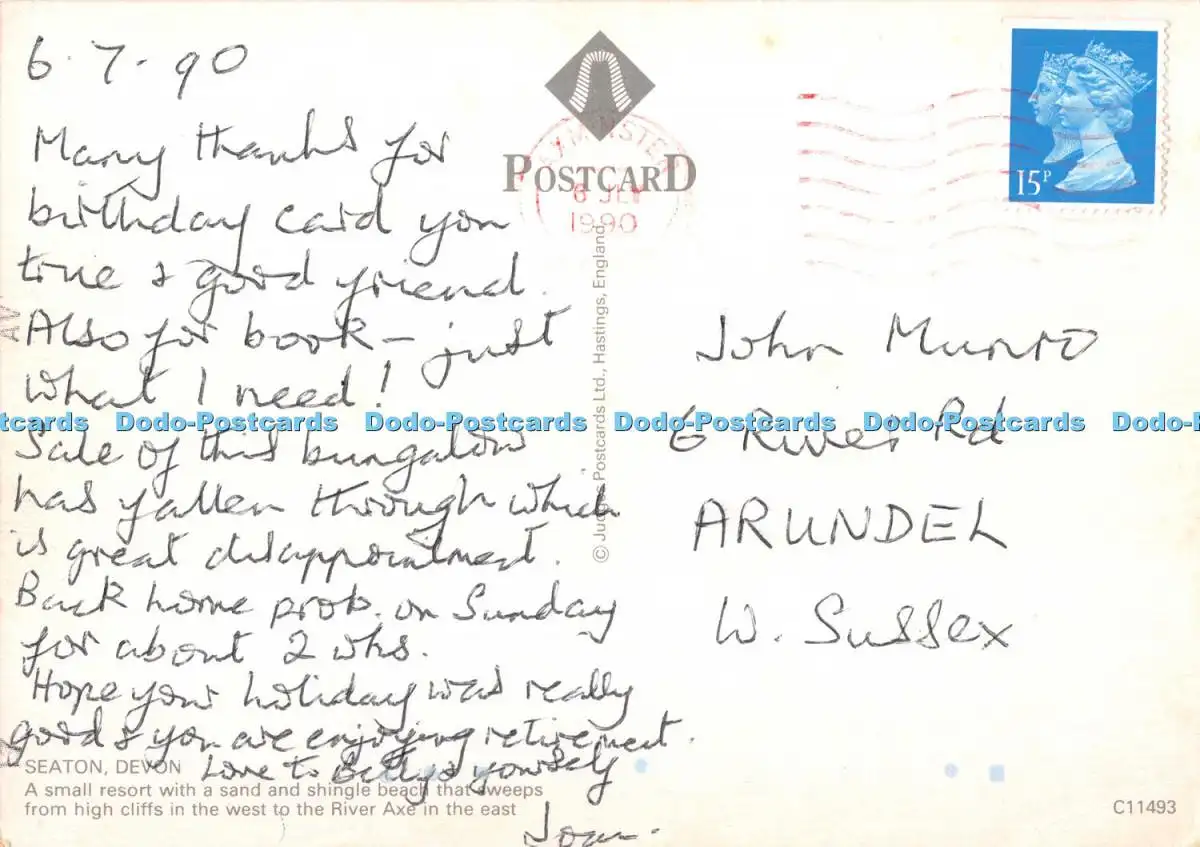 6.7.90
Many thanks for
birthday card you
true & good friend.
Also for book – just
what I need!
Sale of this bungalow
has fallen through which
is great disappointment.
Back home prob. on Sunday
for about 2 wks.
Hope your holiday was really
good & you are enjoying retirement.
Love to Betty & yourself
Joan.
SEATON, DEVON
A small resort with a sand and shingle beach that sweeps
from high cliffs in the west to the River Axe in the east
POSTCARD
AXMINSTER
6 JLY
1990
© Judges Postcards Ltd., Hastings, England
15P
John Munro
6 River Rd
ARUNDEL
W. Sussex
C11493
Dodo-Postcards Dodo-Postcards Dodo-Postcards Dodo-Postcards